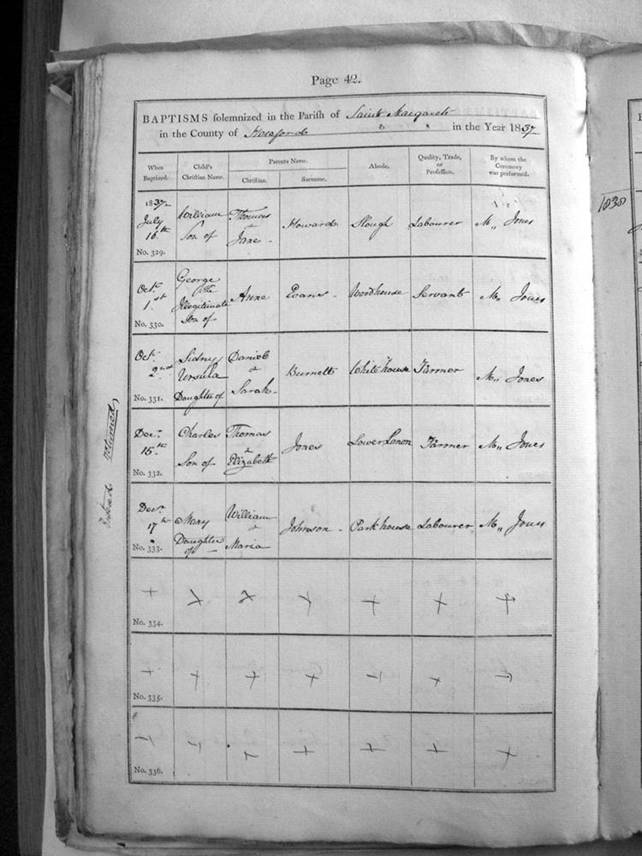 Page 42.
BAPTISMS solemnized in the Parish of Saint Margarets
in the County of Hereford in the Year 1837
When Baptized. Child's Christian Name. Parents Name. Christian. Surname. Abode. Quality, Trade, or Profession. By whom the Ceremony was performed.
1837
July 18th William Son of Thomas & Jane Howard Slough Labourer Mr. Jones
No. 329.
Octr 1st George the Illegitimate Son of Anne Evans Woodhouse Servant Mr. Jones
No. 330.
Octr 2nd Sidney Ursula Daughter of Daniel & Sarah Burnett Whitehouse Farmer Mr. Jones
No. 331.
Decr 15th Charles Son of Thomas & Elizabeth Jones Lower Farmer Mr. Jones
No. 332.
Decr 17th Mary Daughter of William & Maria Johnson Parkhouse Labourer Mr. Jones
No. 333.
No. 334.
No. 335.
No. 336.
1838